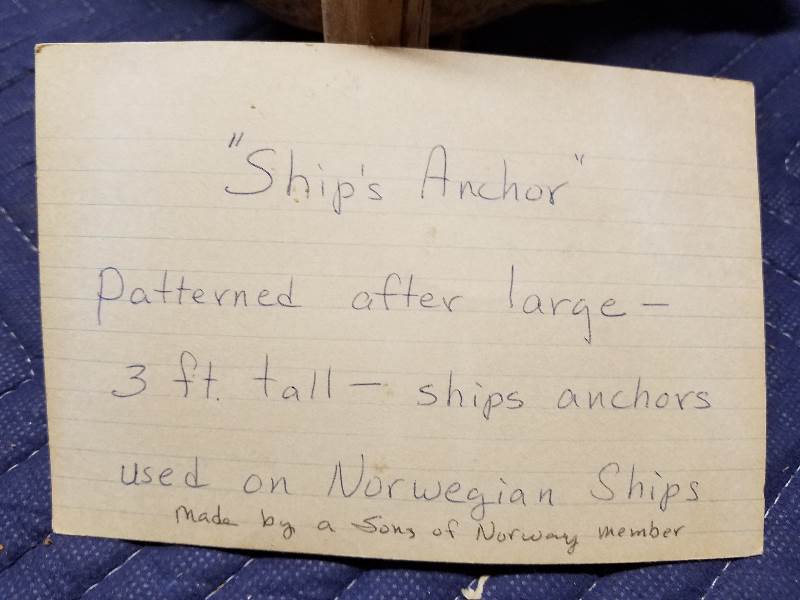 "Ship's Anchor"
Patterned after large –
3 ft. tall – ships anchors
used on Norwegian Ships
Made by a Sons of Norway member